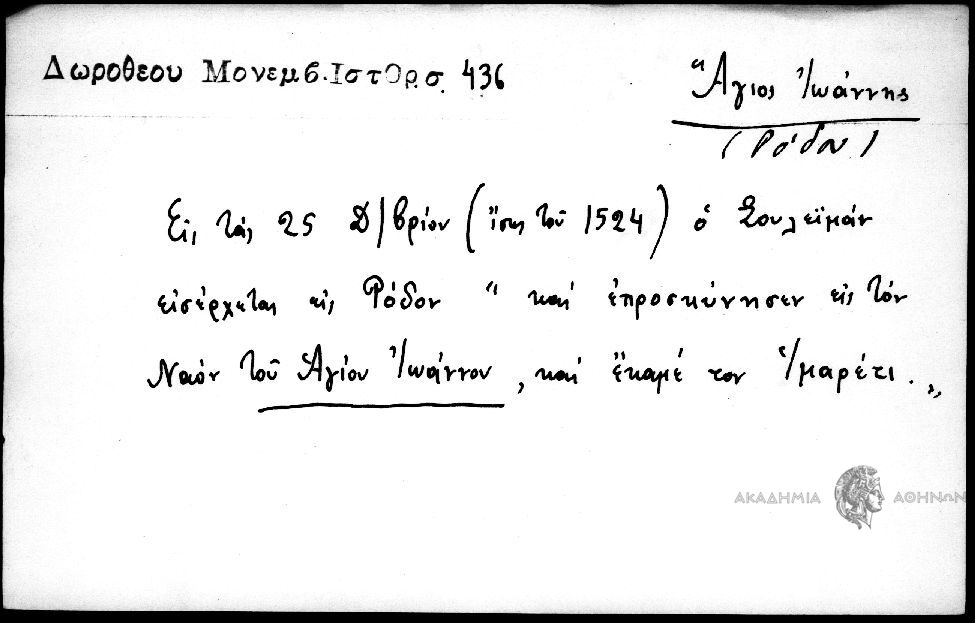 Δωροθεου Μονεμβ.Ιστορσ. 436
Ἅγιος Ἰωάννης
(Ρόδου)
Εἰς τάς 25 Δ/βρίου (ἴσως τοῦ 1524) ὁ Σουλεϊμάν
εἰσέρχεται εἰς Ρόδον " καί ἐπροσκύνησεν εἰς τόν
Ναόν τοῦ Ἁγίου Ἰωάννου, καί ἔκαμέ τον Ἰμαρέτι."
ΑΚΑΔΗΜΙΑ ΑΘΗΝΩΝ